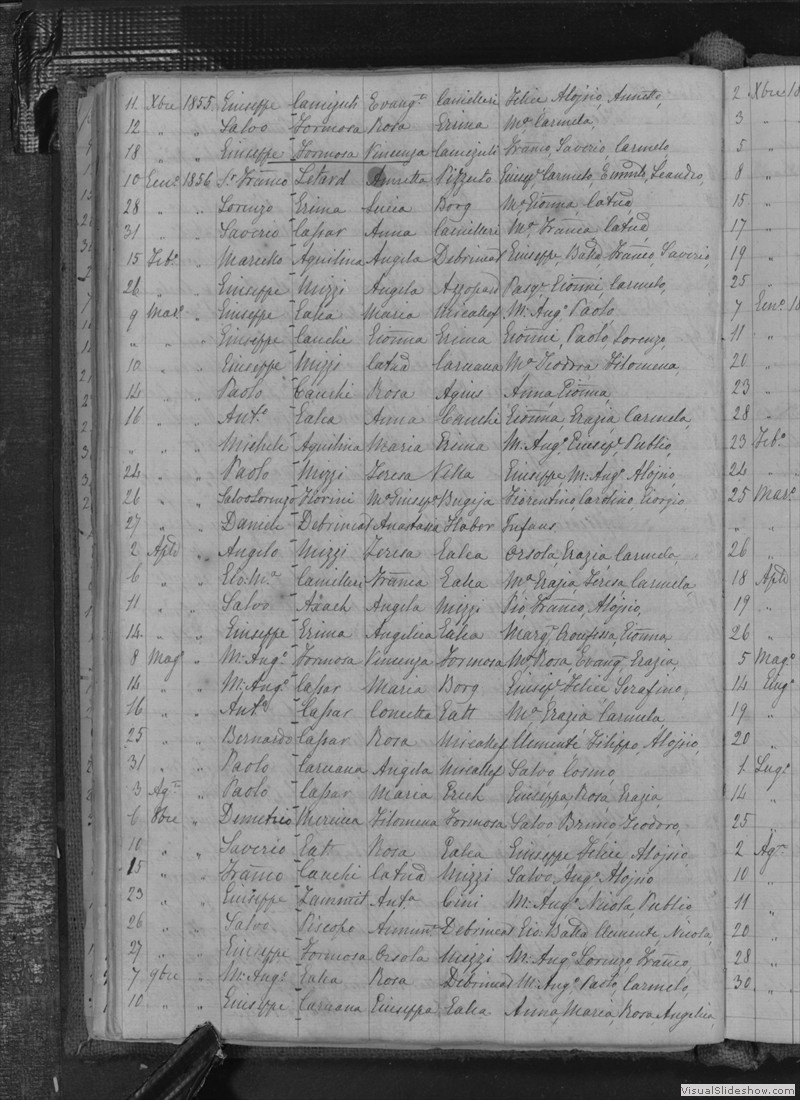 11 Xbre 1855 Giuseppe Camizuli Evang.a Camilleri Felice Aloisio, Annetto,
12 " " Salvo Formosa Rosa Grima M.a Carmela,
18 " " Giuseppe Formosa Vincenza Camizuli Franco, Saverio Carmelo
10 Gen.o 1856 Sr Franco Letard Annetta Pizzuto Giusep. Carmelo Leandro,
28 " " Lorenzo Grima Lucia Borg M.a Gionna Catna,
31 " " Saverio Cassar Anna Camilleri M.a Franca Catna,
15 Feb.o " Aquilina Angela Debrincat Giuseppe, Batta, Franco, Saverio,
26 " " Giuseppe Mizzi Angela Azzopard Pasq.e Gionni, Carmelo,
9 Mar.o " Giuseppe Galea Maria Micallef M: Aug.o Paolo
" " " Giuseppe Cauchi Gionna Grima Gionni, Paolo Lorenzo,
10 " " Giuseppe Mizzi Catna Caruana M.a Teodora Filomena,
14 " " Paolo Cauchi Rosa Agius Anna, Gionna,
16 " " Ant.o Galea Anna Cauchi Gionna Grazia, Carmela,
" " " Michele Aquilina Maria Grima M: Aug.o Giusep.e Publio,
24 " " Paolo Mizzi Teresa Vella Giuseppe M: Aug.o Aloisio,
26 " " Salvo Lorenzo Fiorini M.a Giusep.a Bugeja Fiorentino Carolino Giorgio
27 " " Daniele Debrincat Anastasia Habor Infans
2 Aple " Angelo Mizzi Teresa Galea Orsola, Grazia, Carmela,
6 " " Gio: M.a Camilleri Franca Galea M.a Grazia, Teresa, Carmela,
11 " " Salvo Axach Angela Mizzi Pio, Franco, Aloisio,
14 " " Giuseppe Grima Angelica Galea Marg.a Gionna
8 Mag.o " M: Aug.o Formosa Vincenza Formosa M.a Rosa, Evang.a Grazia,
14 " " M: Aug.o Cassar Maria Borg Giusep.e Felice Serafino,
16 " " Ant.o Cassar Concetta Gatt M.a Grazia Carmela,
25 " " Bernardo Cassar Rosa Micallef Clemente Filippo, Aloisio,
31 " " Paolo Caruana Angela Micallef Salvo Cosmo,
3 Ag.to " Paolo Cassar Maria Grech Giuseppa, Rosa, Grazia,
6 8bre " Demetrio Mercieca Filomena Formosa Salvo Bruno, Teodoro,
10 " " Saverio Gatt Rosa Galea Giuseppe Felice Aloisio
15 " " Franco Cauchi Catna Mizzi Salvo, Aug.o Aloisio
23 " " Giuseppe Zammit Ant.a Cini M: Aug.o Nicola, Publio
26 " " Salvo Piscopo Annun.a Debrincat Gio: Batta Clemente, Nicola,
27 " " Giuseppe Formosa Orsola Mizzi M: Aug.o Lorenzo, Franco,
7 9bre " M: Aug.o Galea Rosa Debrincat M: Aug.o Paolo, Carmelo,
10 " " Giuseppe Caruana Giuseppa Galea Anna, Maria, Rosa, Angelica,
2 Xbre 18
3 "
5 "
8 "
15 "
17 "
19 "
25 "
7 Gen.o 18
11 "
20 "
23 "
28 "
23 Feb.o
24 "
25 Mar.o
" "
26 "
18 Aple
19 "
26 "
5 Mag.o
14 Giug.o
19 "
20 "
1 Lug.o
14 "
25 "
2 Ag.to
10 "
11 "
20 "
28 "
30 "
VisualSlideshow.com